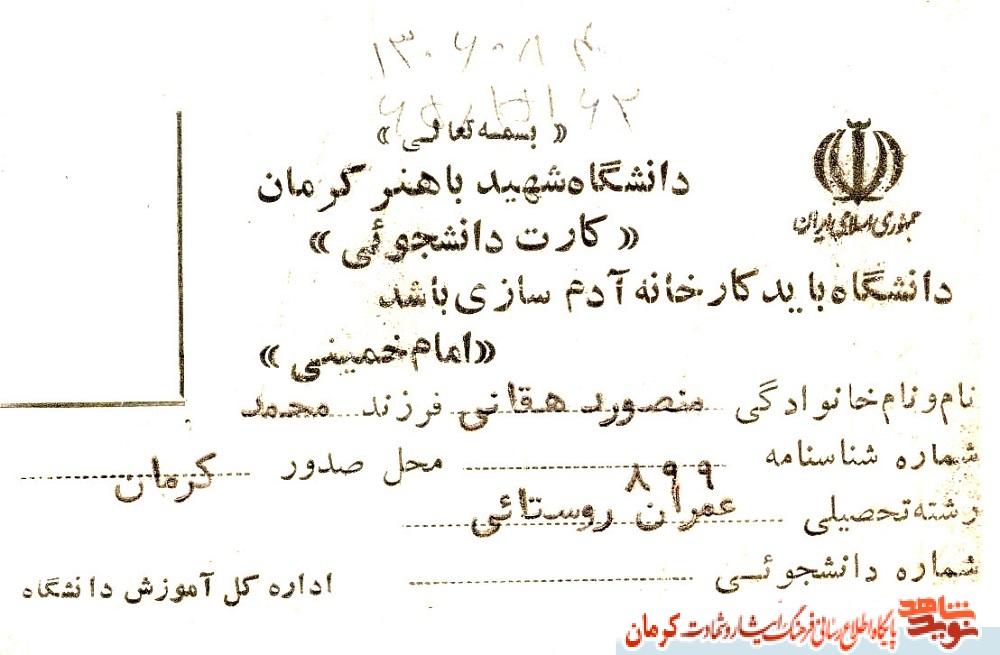 « بسمه تعالی »
جمهوری اسلامی ایران
دانشگاه شهید باهنر کرمان
« کارت دانشجوئی »
دانشگاه باید کارخانه آدم سازی باشد
«امام خمینی »
نام و نام خانوادگی منصور دهقانی فرزند محمد
شماره شناسنامه ۸۹۹ محل صدور کرمان
رشته تحصیلی عمران روستائی
شماره دانشجوئی
اداره کل آموزش دانشگاه
نوید شاهد پایگاه اطلاع رسانی فرهنگ ایثار و شهادت کرمان